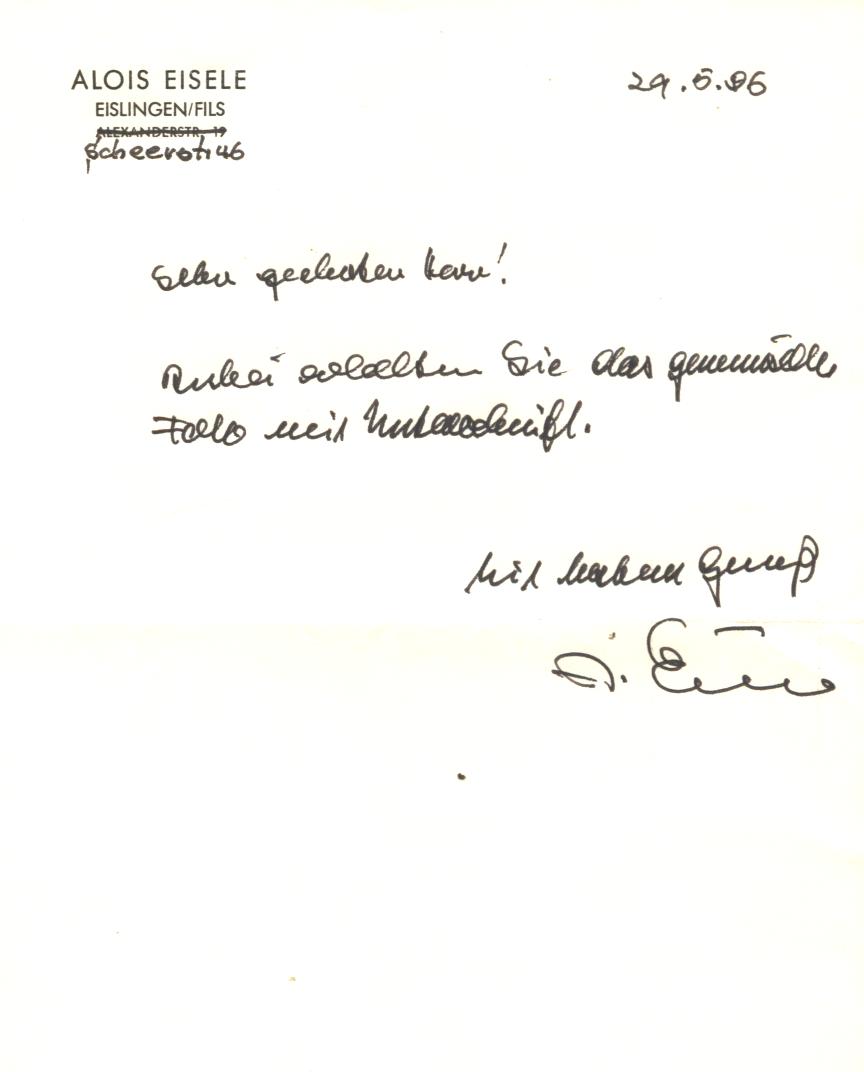 ALOIS EISELE
29.5.96
EISLINGEN/FILS
ALEXANDERSTR. 19
Scheerstr. 46
Sehr geehrter Herr!
Anbei erhalten Sie das gewünschte
Foto mit Unterschrift.
Mit frohem Gruß
A. Eisele